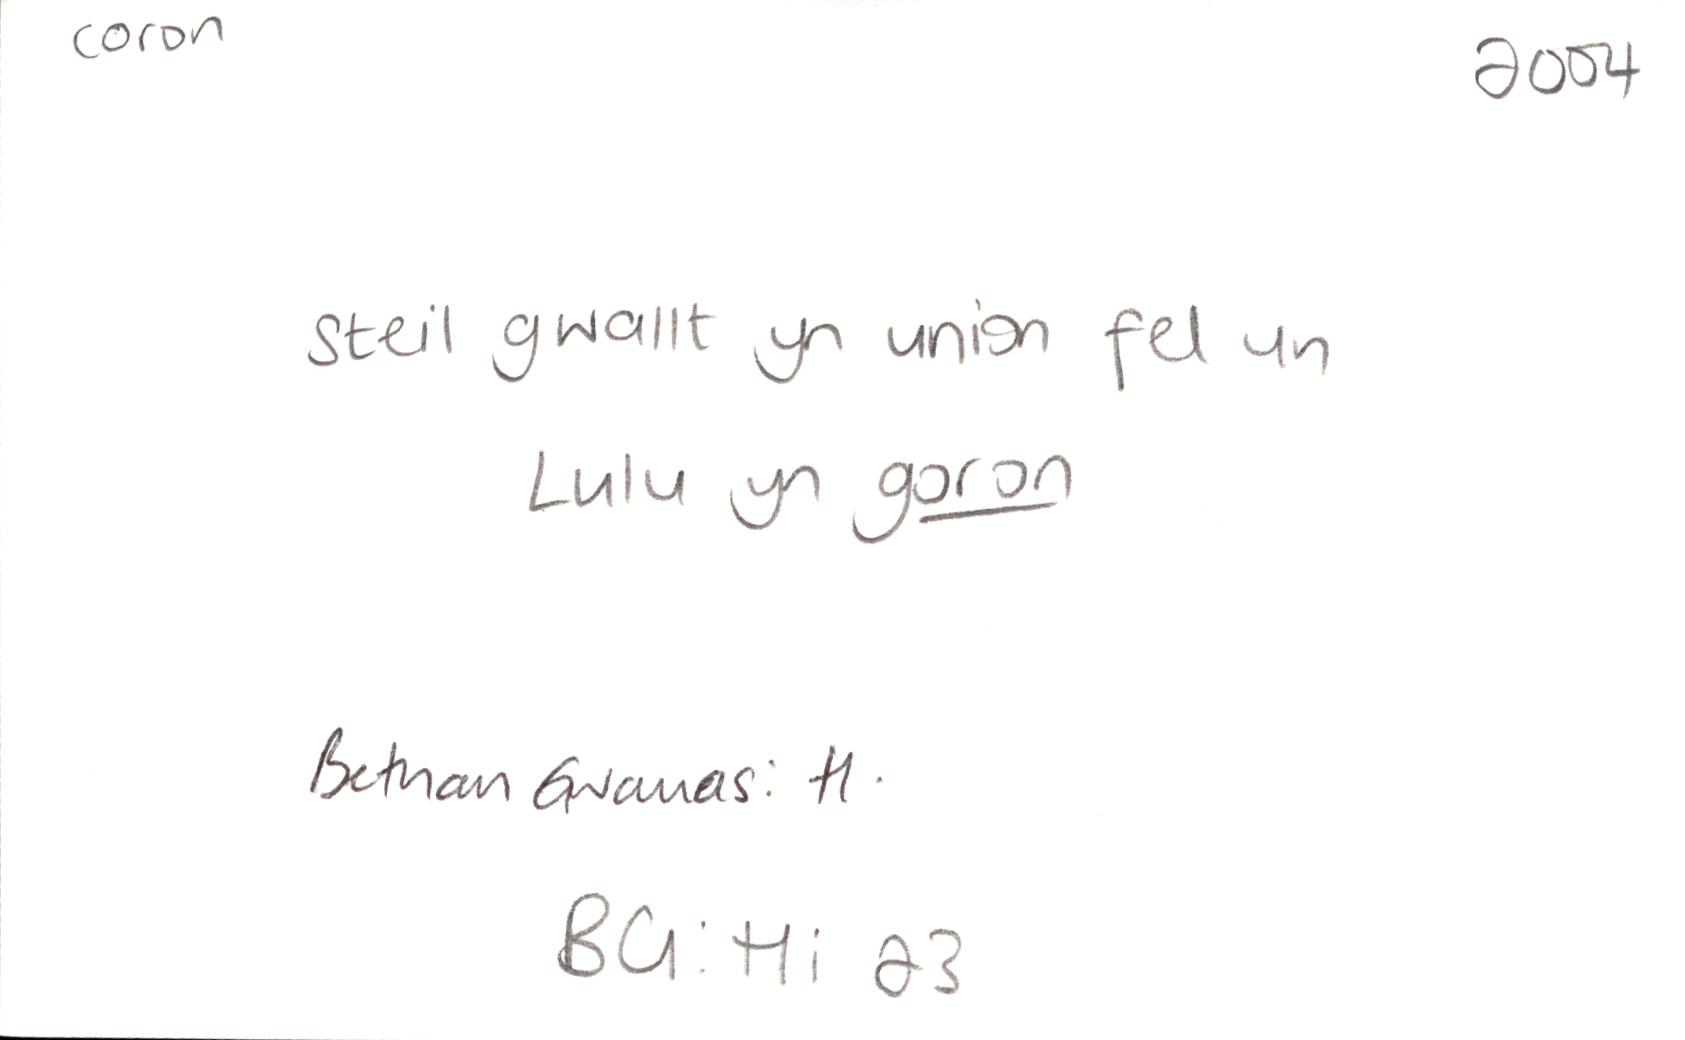 coron
2004
steil gwallt yn union fel un
Lulu yn goron
Bethan Gwanas: H.
BG: Hi 23